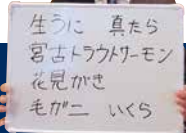 生うに 真たら
宮古トラウトサーモン
花見がき
毛ガニ いくら